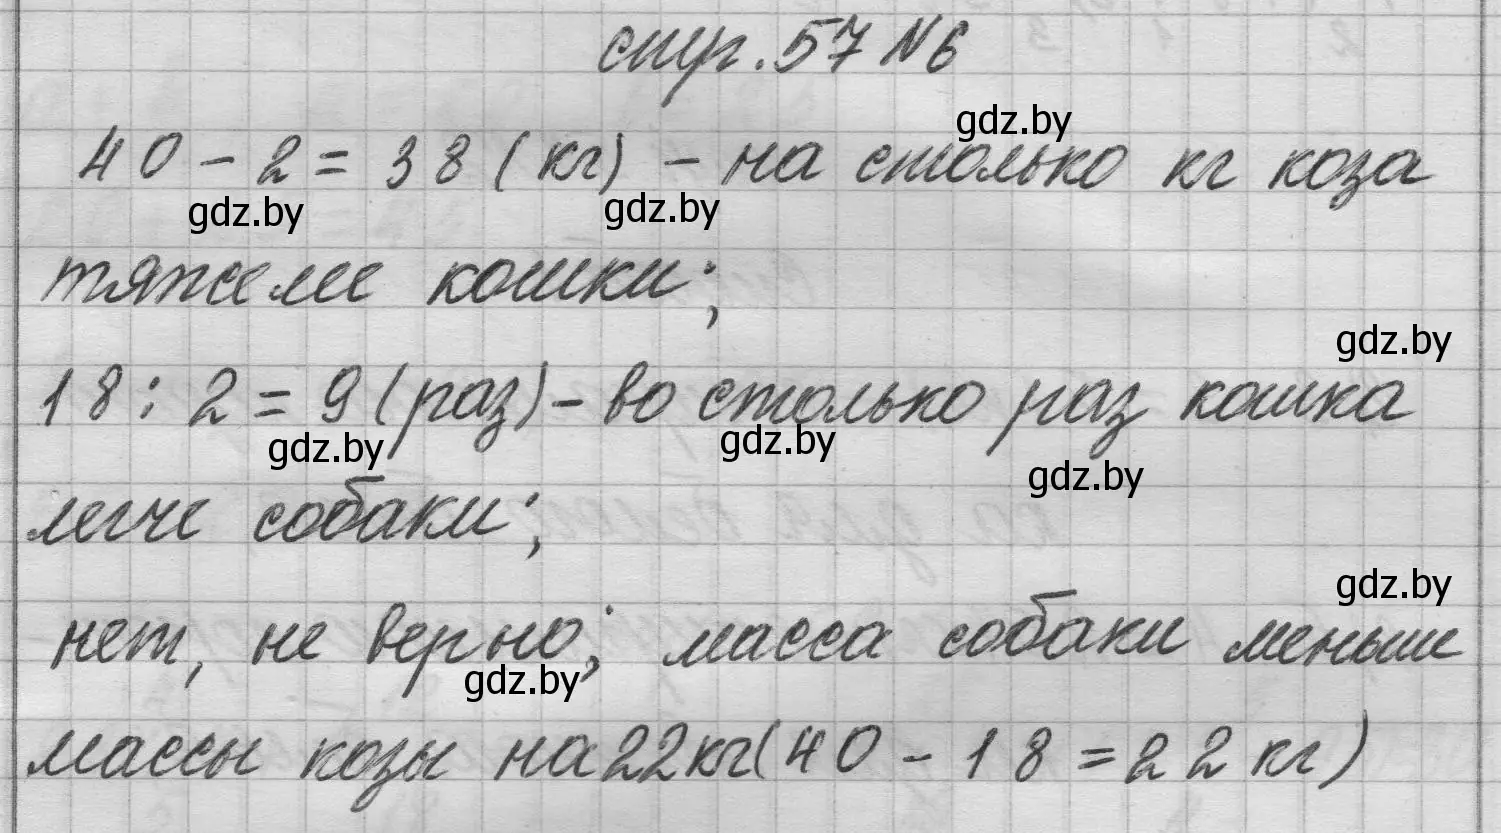 стр. 57 №6
gdz.by
40 - 2 = 38 (кг) - на столько кг коза
gdz.by gdz.by
тяжелее кошки;
gdz.by
18 : 2 = 9 (раз) - во столько раз кошка
gdz.by gdz.by
gdz.by
легче собаки;
gdz.by
нет, не верно; масса собаки меньше
gdz.by
массы козы на 22 кг (40 - 18 = 22 кг)